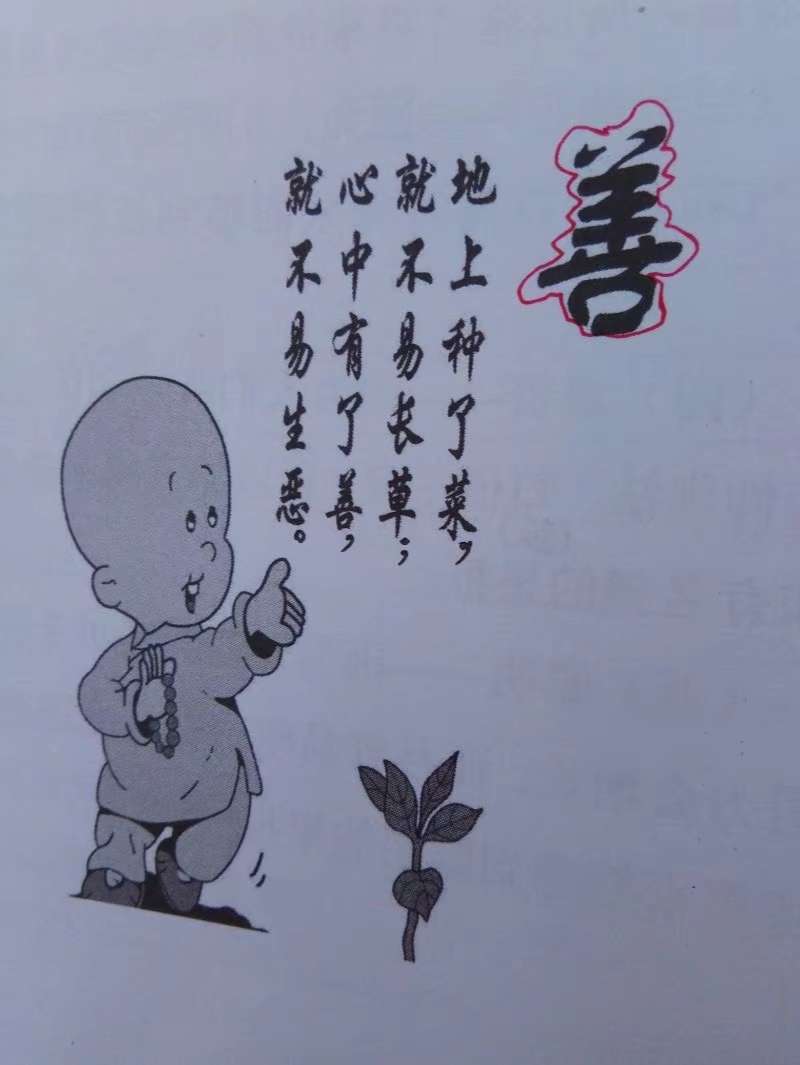 善
地上种了菜，
就不易长草；
心中有了善，
就不易生恶。